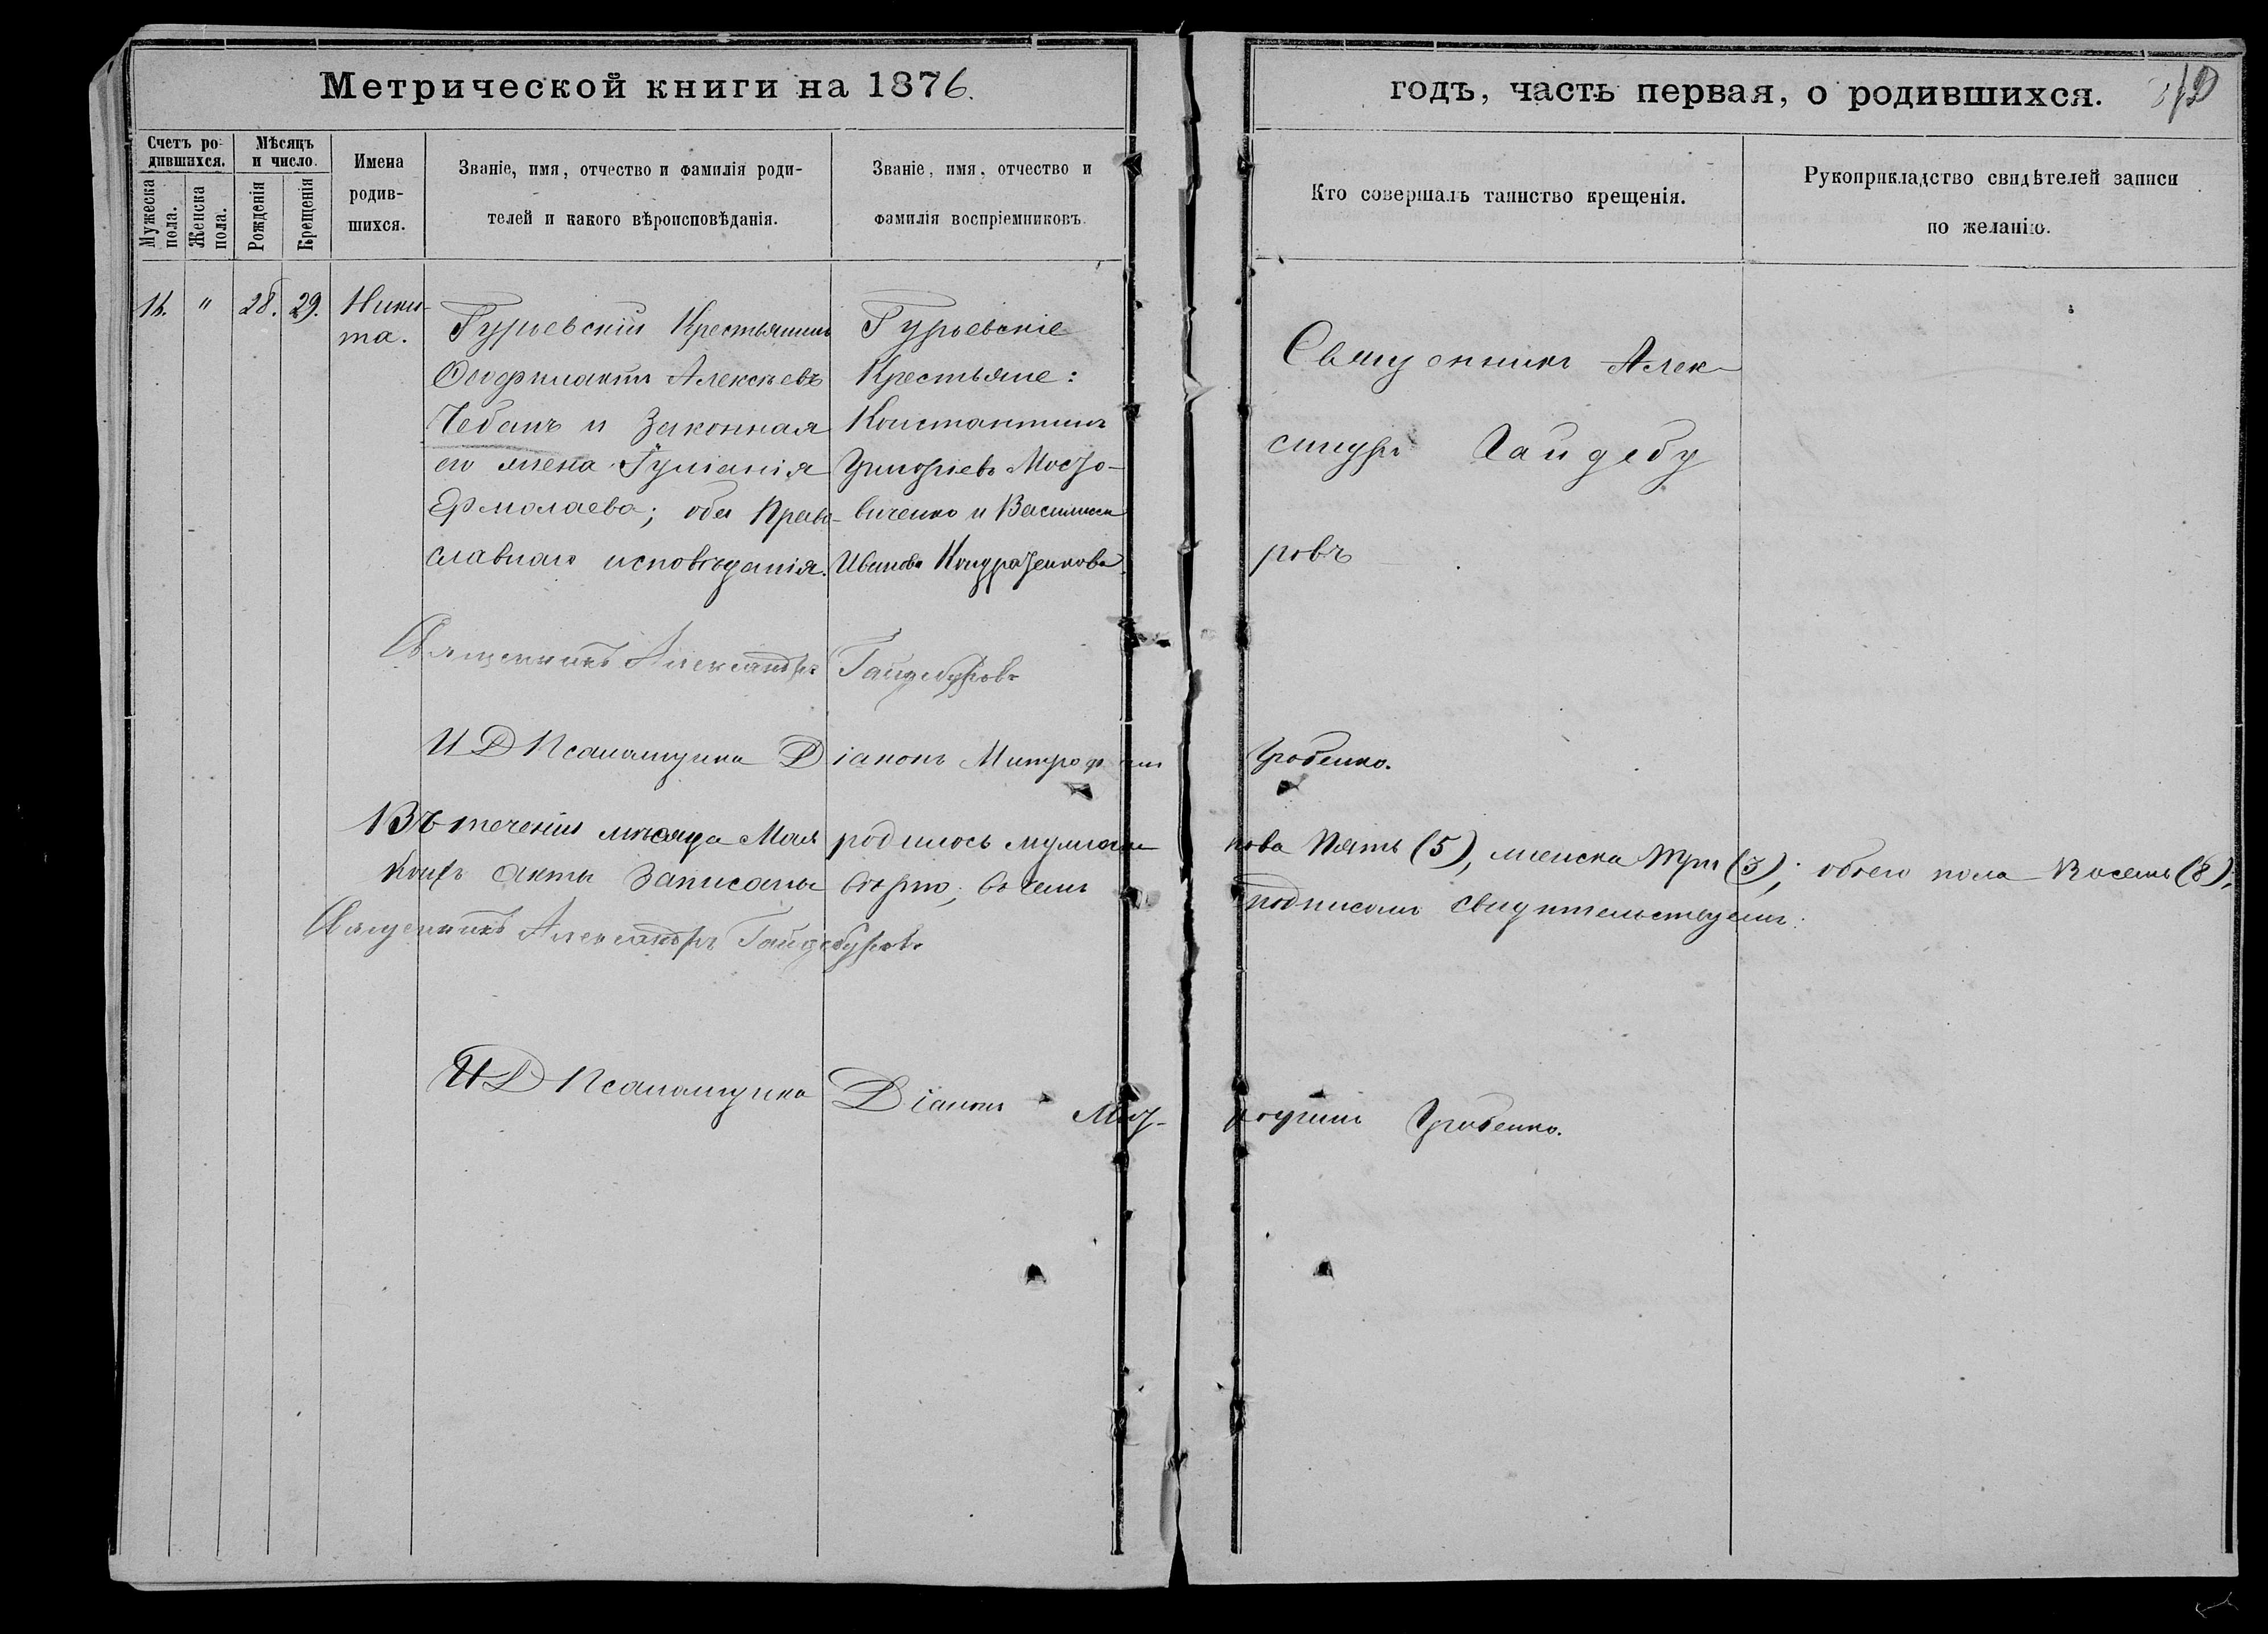 Метрической книги на 1876.
годъ, часть первая, о родившихся.
Счетъ ро-
дившихся.
Мѣсяцъ
и число.
Мужеска
пола.
Женска
пола.
Рожденія
Крещенія
Имена
родив-
шихся.
Званіе, имя, отчество и фамилія роди-
телей и какого вѣроисповѣданія.
Званіе, имя, отчество и
фамилія воспріемниковъ.
Кто совершалъ таинство крещенія.
Рукоприкладство свидѣтелей записи
по желанію.
"
28.
29.
Ники-
та.
Гурьевскій Крестьянинъ
Ѳеофилактъ Алексѣевъ
Чебанъ и законная
его жена Іуліанія
Ермолаева; оба Право-
славнаго исповѣданія.
Гурьевскіе
Крестьяне:
Константинъ
Григорьевъ
и Василиса
Иванова Кондратенкова.
Священникъ Алек-
сандръ Гайдебу
ровъ
Священникъ Александръ Гайдебуровъ
И Д Псаломщика Діаконъ Митрофанъ Гробенко.
Въ теченіи мѣсяца Мая родилось мужеска пола Пять (5), женска Три (3); обоего пола Восемь (8);
коихъ акты записаны вѣрно; въ чемъ подписомъ свидѣтельствуемъ:
Священникъ Александръ Гайдебуровъ
И Д Псаломщика Діаконъ Мит- рофанъ Гробенко.